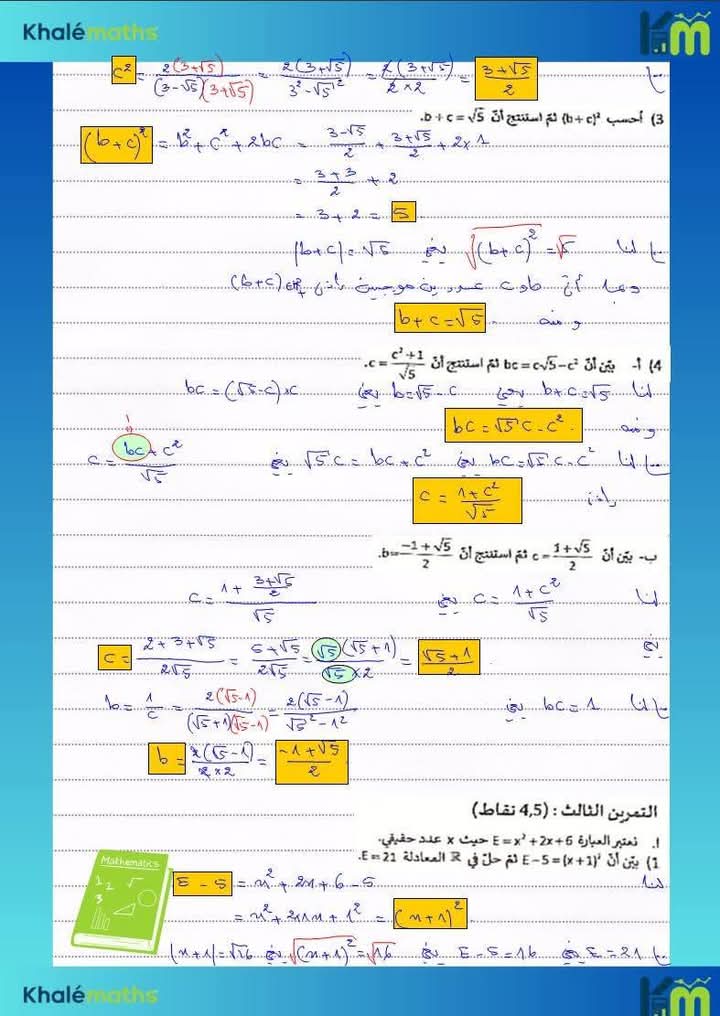 Khalémaths
Km
c² = 2(3+√5) / (3-√5)(3+√5) = 2(3+√5) / 3²-√5² = 2(3+√5) / 2×2 = 3+√5 / 2
3) أحسب (b+c)² ثمّ استنتج أنّ b+c=√5.
(b+c)² = b²+c²+2bc = 3-√5 / 2 + 3+√5 / 2 + 2×1
= 3+3 / 2 + 2
= 3+2 = 5
لنا √(b+c)² = √5 يعني |b+c| = √5
وبما أنّ b و c عددين موجبين إذن (b+c)∈ℝ₊
ومنه b+c=√5
4) أ- بيّن أنّ bc=c√5-c² ثمّ استنتج أنّ c= c²+1 / √5.
لنا b+c=√5 يعني b=√5-c يعني bc=(√5-c)×c
ومنه bc=√5c-c².
1
لنا bc=√5c-c² يعني √5c=bc+c² يعني c= bc+c² / √5
إذن c = 1+c² / √5
ب- بيّن أنّ c= 1+√5 / 2 ثمّ استنتج أنّ b= -1+√5 / 2.
لنا c= 1+c² / √5 يعني c= 1+ 3+√5 / 2 / √5
يعني c= 2+3+√5 / 2√5 = 5+√5 / 2√5 = √5(√5+1) / √5×2 = √5+1 / 2.
لنا bc=1 يعني b= 1 / c = 2(√5-1) / (√5+1)(√5-1) = 2(√5-1) / √5²-1²
b= 2(√5-1) / 2×2 = -1+√5 / 2
التمرين الثالث : (4,5 نقاط)
I. نعتبر العبارة E=x²+2x+6 حيث x عدد حقيقي.
1) بيّن أنّ E-5=(x+1)² ثمّ حلّ في ℝ المعادلة E=21.
Mathematics
1 2 √
3
لنا E-5 = x²+2x+6-5
= x²+2×1×x+1² = (x+1)².
E=21 يعني E-5=16 يعني √(x+1)²=√16 يعني |x+1|=√16
Khalémaths
Km